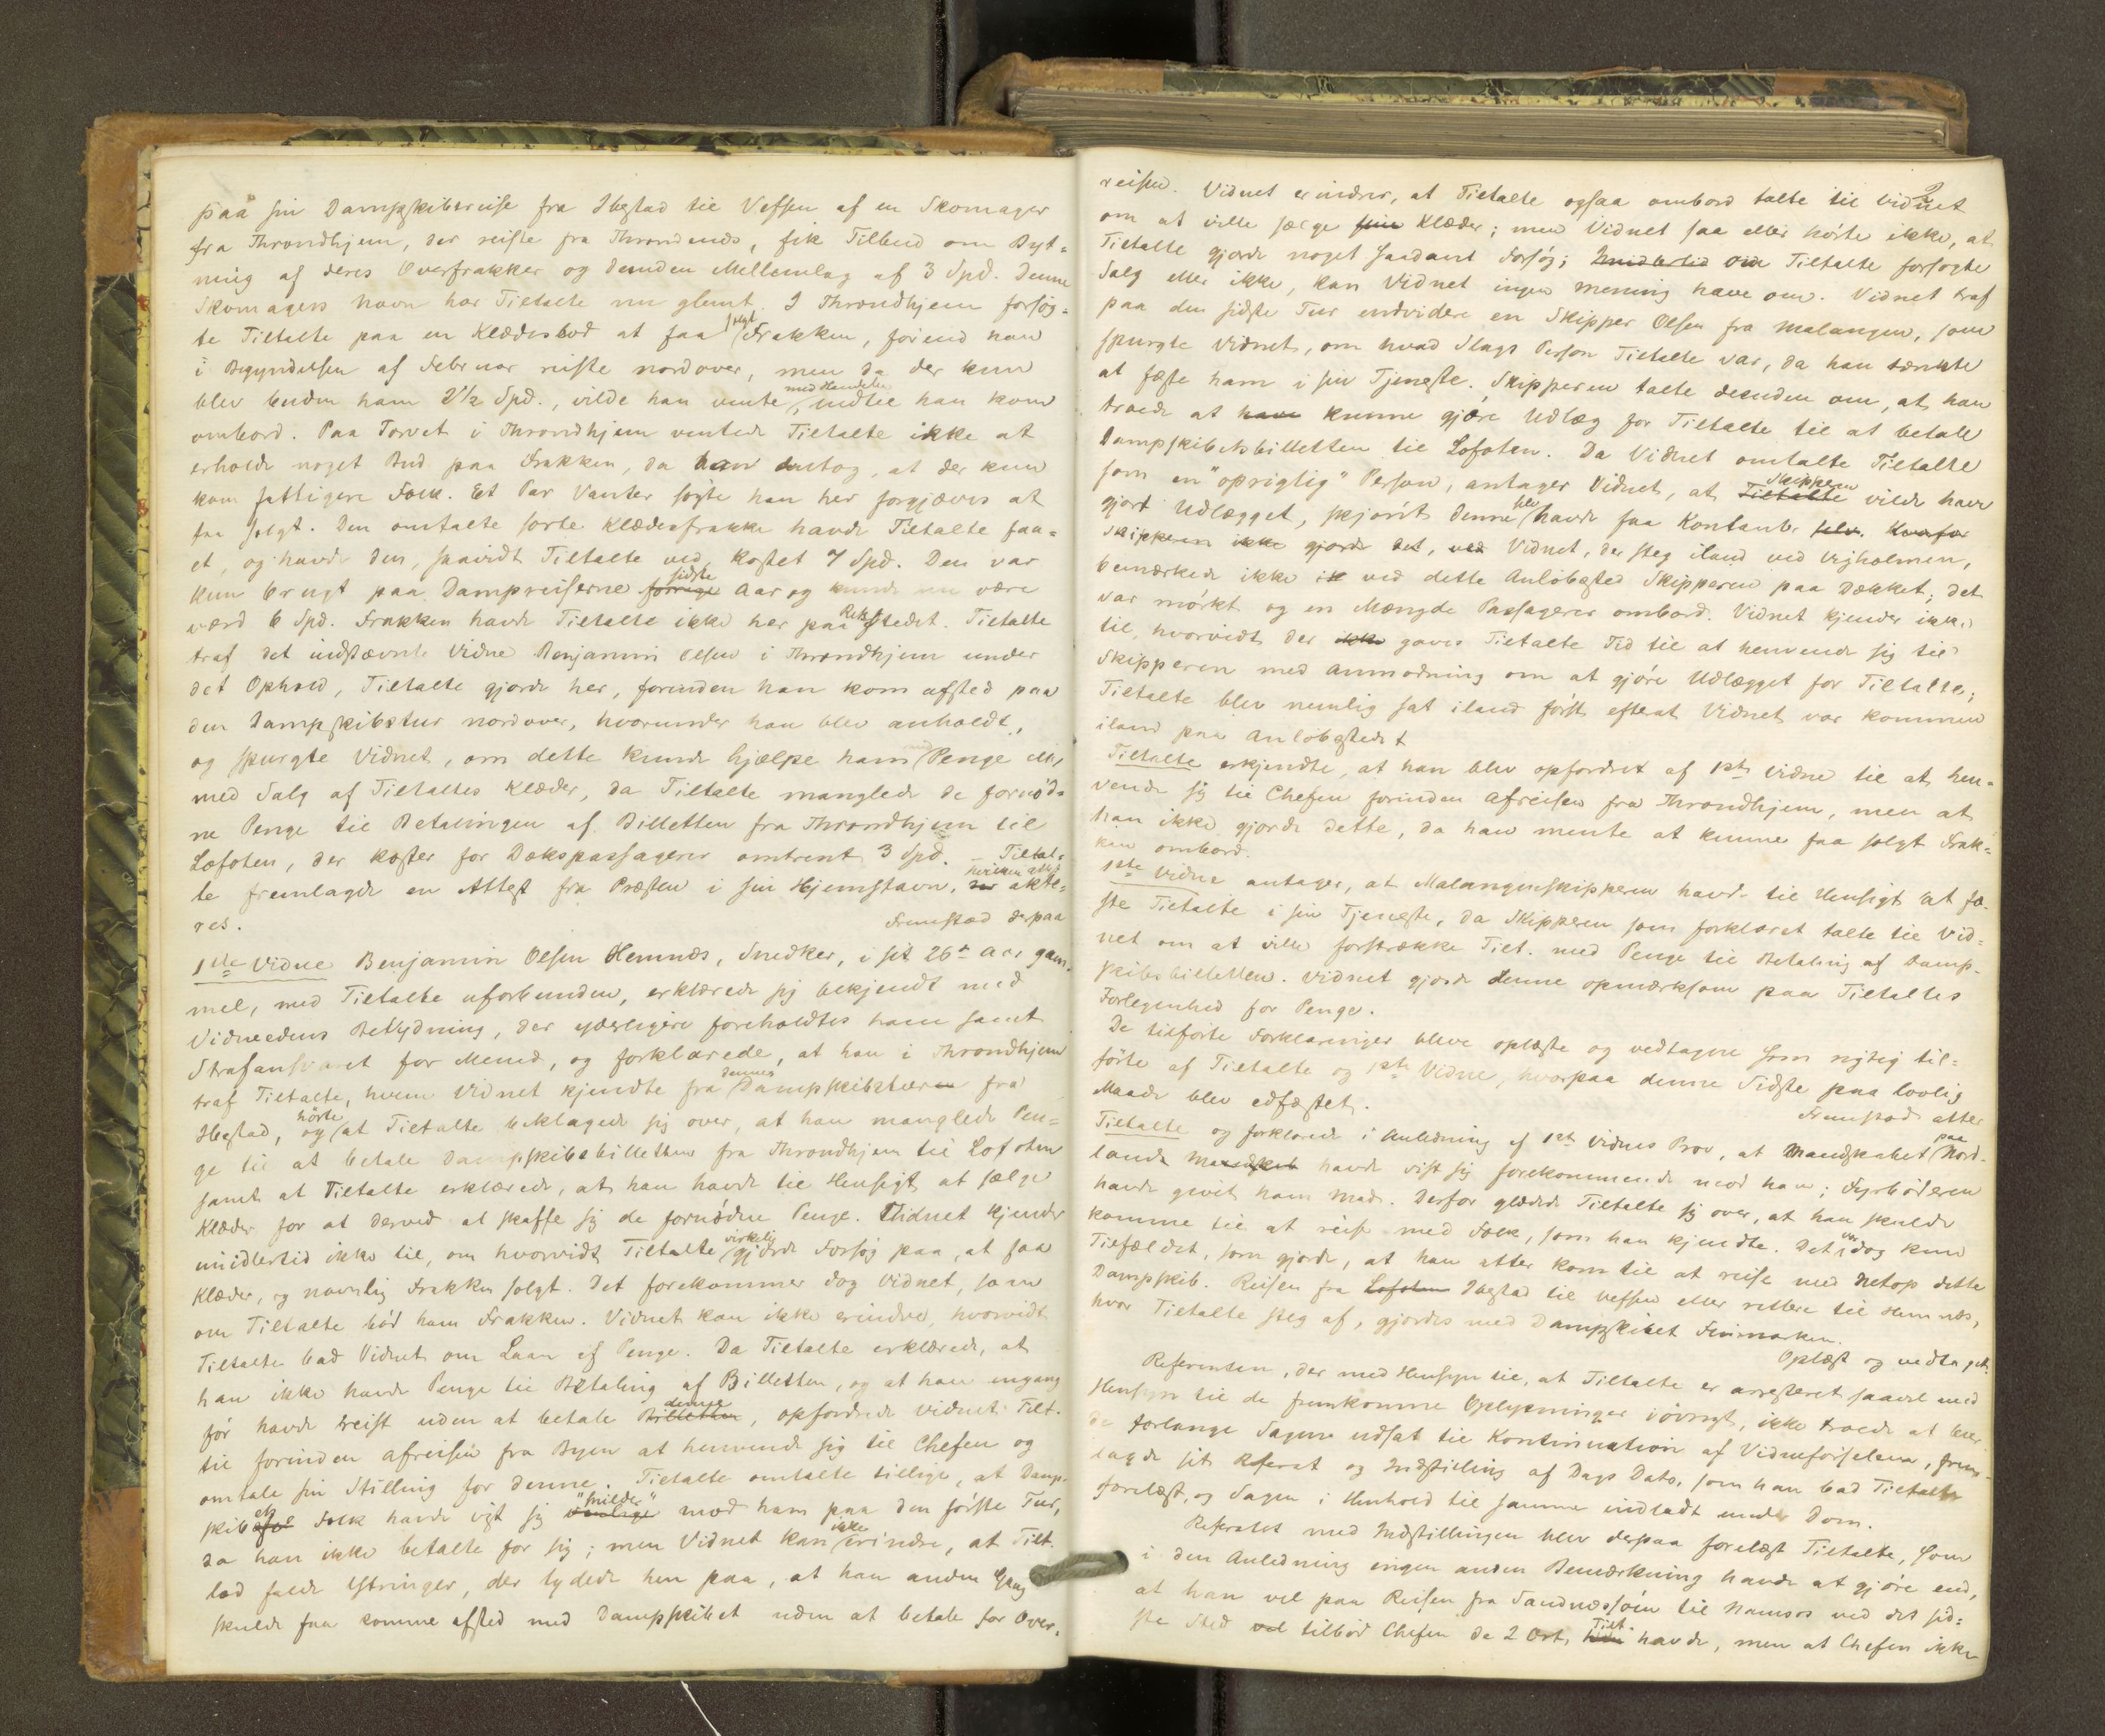 paa sin Dampskibsreise fra Ibestad til Vefsen af en Skomager
fra Throndhjem, der reiste fra Throndenæs, fik Tilbud om Byt-
ning af deres Overfrakker og desuden Mellemlag af 3 Spd. Denne
Skomagers Navn har Tiltalte nu glemt. I Throndhjem forsøg-
te Tiltalte paa en Klædesbod at faa solgt Frakken, førend han
i Begyndelsen af Februar reiste nordover, men da der kun
blev buden ham 2 1/2 Spd., vilde han vente med Handelen, indtil han kom
ombord. Paa Torvet i Throndhjem ventede Tiltalte ikke at
erholde noget Bud paa Frakken, da han antog, at der kun
kom fattigere Folk. Et Par Vanter søgte han her forgjæves at
faa solgt. Den omtalte sorte Klædesfrakke havde Tiltalte faa-
et, og havde den, saavidt Tiltalte ved, kostet 7 Spd. Den var
kun brugt paa Dampreiserne forrige sidste Aar og kunde nu være
værd 6 Spd. Frakken havde Tiltalte ikke her paa Retsstedet. Tiltalte
traf det indstævnte Vidne Benjamin Olsen i Throndhjem under
det Ophold, Tiltalte gjorde her, forinden han kom afsted paa
den Dampskibstur nordover, hvorunder han blev anholdt,
og spurgte Vidnet, om dette kunde hjælpe ham med Penge ell.
med Salg af Tiltaltes Klæder, da Tiltalte manglede de fornød-
ne Penge til Betalingen af Billetten fra Throndhjem til
Lofoten, der koster for Dækspassagerer omtrent 3 Spd. – Tiltal-
te fremlagde en Attest fra Præsten i sin Hjemstavn, der hvilken att. akte-
res.
Fremstod derpaa
1ste Vidne Benjamin Olsen Hemnæs, Snedker, i sit 26de Aar gam-
mel, med Tiltalte uforbunden, erklærede sig bekjendt med
Vidneedens Betydning, der yderligere foreholdtes ham samt
Strafansvaret for Mened, og forklarede, at han i Throndhjem
traf Tiltalte, hvem Vidnet kjendte fra dennes Dampskibsturen fra
Ibestad, og hørte at Tiltalte beklagede sig over, at han manglede Pen-
ge til at betale Dampskibsbilletten fra Throndhjem til Lofoten
samt at Tiltalte erklærede, at han havde til Hensigt at sælge
Klæder for at derved at skaffe sig de fornødne Penge. Vidnet kjender
imidlertid ikke til, om hvorvidt Tiltalte virkelig gjorde Forsøg paa, at faa
Klæder, og navnlig Frakken solgt. Det forekommer dog Vidnet, som
om Tiltalte bød ham Frakken. Vidnet kan ikke erindre, hvorvidt
Tiltalte bad Vidnet om Laan af Penge. Da Tiltalte erklærede, at
han ikke havde Penge til Betaling af Billetten, og at han engang
før havde reist uden at betale Billetten denne, opfordrede Vidnet Tilt.
til forinden Afreisen fra Byen at henvende sig til Chefen og
omtale sin Stilling for denne. Tiltalte omtalte tillige, at Damp-
skibets Folk havde vist sig "milde" mod ham paa den første Tur,
da han ikke betalte for sig; men Vidnet kan ikke erindre, at Tilt.
lod falde Ytringer, der tydede hen paa, at han anden Gang
skulde faa komme afsted med Dampskibet uden at betale for Over-
2
reisen. Vidnet erindrer, at Tiltalte ogsaa ombord talte til Vidnet
om at ville sælge sine Klæder; men Vidnet saa eller hørte ikke, at
Tiltalte gjorde noget saadant Forsøg; Imidlertid om Tiltalte forsøgte
Salg eller ikke, kan Vidnet ingen Mening have om. Vidnet traf
paa den sidste Tur endvidere en Skipper Olsen fra Malangen, som
spurgte Vidnet, om hvad Slags Person Tiltalte var, da han tænkte
at fæste ham i sin Tjeneste. Skipperen talte desuden om, at han
troede at have kunne gjøre Udlæg for Tiltalte til at betale
Dampskibsbilletten til Lofoten. Da Vidnet omtalte Tiltalte
som en "oprigtig" Person, antager Vidnet, at Tiltalte Skipperen vilde have
gjort Udlægget, skjønt denne selv havde faa Kontanter selv. Hvorfor
Skipperen ikke gjorde det, ved Vidnet, der steg iland ved Vigholmen,
bemærkede ikke ved dette Anløbssted Skipperen paa Dækket; det
var mørkt og en Mængde Passagerer ombord. Vidnet kjender ikke
til, hvorvidt der ikke gaves Tiltalte Tid til at henvende sig til
Skipperen med Anmodning om at gjøre Udlægget for Tiltalte;
Tiltalte blev nemlig sat iland først efterat Vidnet var kommen
iland paa Anløbsstedet
Tiltalte erkjendte, at han blev opfordret af 1ste Vidne til at hen-
vende sig til Chefen forinden Afreisen fra Throndhjem, men at
han ikke gjorde dette, da han mente at kunne faa solgt Frak-
ken ombord.
1ste Vidne antager, at Malangenskipperen havde til Hensigt at fæ-
ste Tiltalte i sin Tjeneste, da Skipperen som forklaret talte til Vid-
net om at ville forstrække Tilt. med Penge til Betaling af Damp-
skibsbilletten. Vidnet gjorde denne opmærksom paa Tiltaltes
Forlegenhed for Penge.
De tilførte Forklaringer bleve oplæste og vedtagne som rigtig til-
førte af Tiltalte og 1ste Vidne, hvorpaa denne Sidste paa lovlig
Maade blev edfæstet.
Fremstod atter
Tiltalte og forklarede i Anledning af 1ste Vidnes Prov, at Mandskabet paa Nord-
lands Mandskab havde vist sig forekommende mod ham; Fyrbøderen
havde givet ham Mad. Derfor glædede Tiltalte sig over, at han skulde
komme til at reise med Folk, som han kjendte. Det var idag kun
Tilfældet, som gjorde, at han atter kom til at reise med netop dette
Dampskib. Reisen fra Lofoten Ibestad til Vefsen eller rettere til Hemnæs,
hvor Tiltalte steg af, gjordes med Dampskibet Finmarken.
Oplæst og vedtaget.
Referenten, der med Hensyn til, at Tiltalte er arresteret saavel med
Hensyn til de fremkomne Oplysninger iøvrigt, ikke troede at bur-
de forlange Sagen udsat til Kontinuation af Vidneførselen, frem-
lagde sit Referat og Indstilling af Dags Dato, som han bad Tiltalte
forelæst, og Sagen i Henhold til samme indladt under Dom.
Referatet med Indstillingen blev derpaa forelæst Tiltalte, som
i den Anledning ingen anden Bemærkning havde at gjøre end,
at han vel paa Reisen fra Sandnæssøen til Namsos ved det sid-
ste Sted vel tilbød Chefen de 2 Ort, han Tilt. havde, men at Chefen ikke